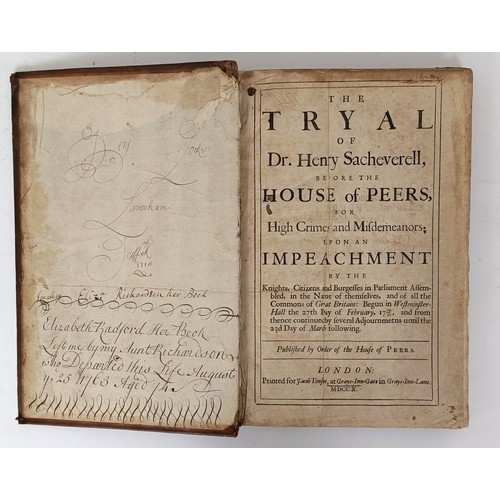 Lavenham
Eliz. Richardson her Book
Elizabeth Radford Her Book
Left me by my Aunt Richardson
who Departed this Life August
y. 25 1763 Aged
THE
TRYAL
OF
Dr. Henry Sacheverell,
BEFORE THE
HOUSE of PEERS,
FOR
High Crimes and Misdemeanors;
UPON AN
IMPEACHMENT
BY THE
Knights, Citizens and Burgesses in Parliament Assem-
bled, in the Name of themselves, and of all the
Commons of Great Britain: Begun in Westminster-
Hall the 27th Day of February, and from
thence continued by several Adjournments until the
23d Day of March following.
Published by Order of the House of PEERS.
LONDON:
Printed for Jacob Tonson, at Grays-Inn-Gate in Grays-Inn-Lane.
MDCCX.